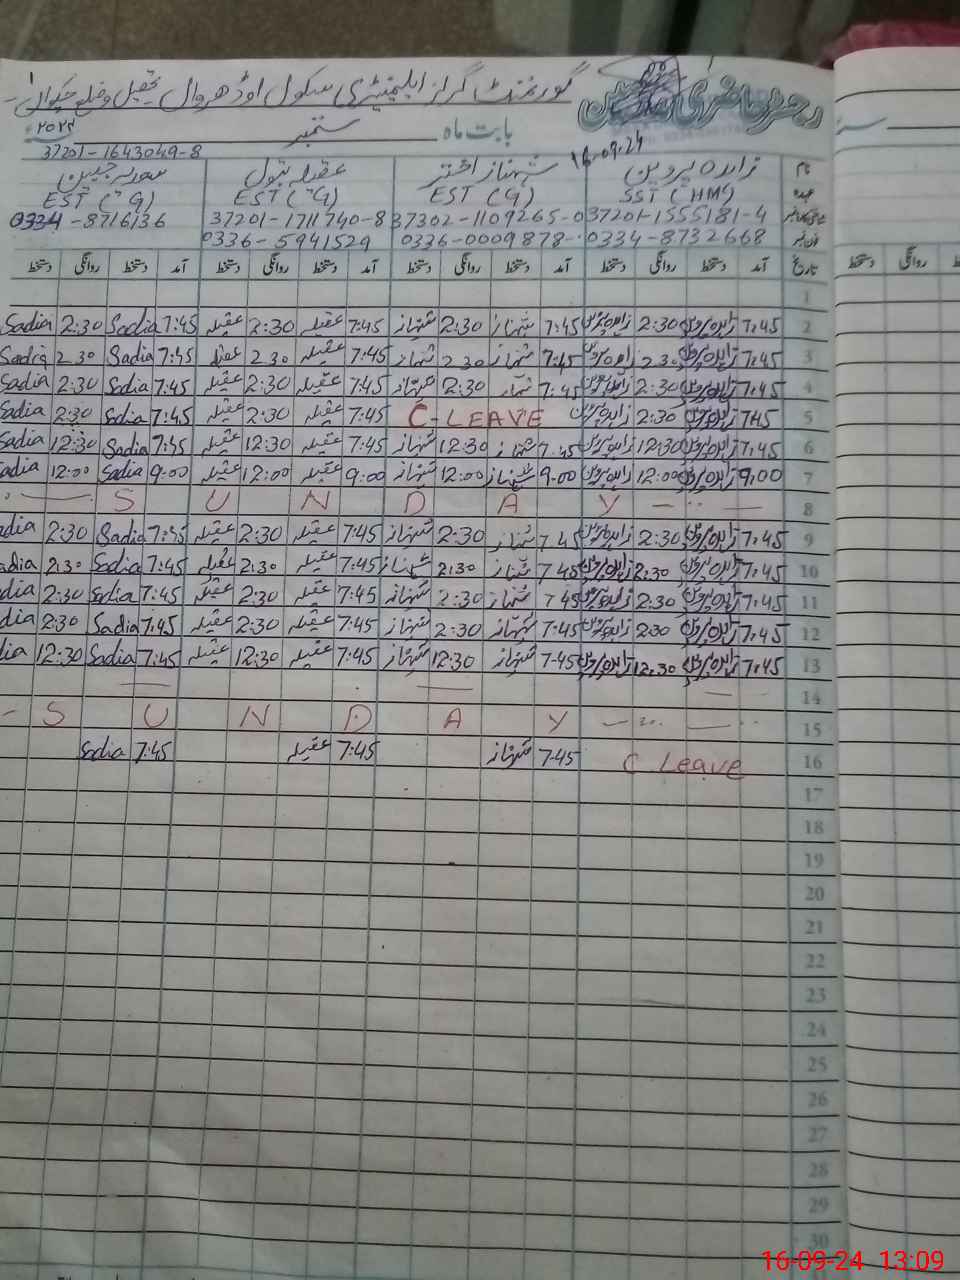 گورنمنٹ گرلز ایلیمنٹری سکول اوڈھروال تحصیل و ضلع چکوال
رجسٹر حاضری مدرسین
بابت ماہ ستمبر ۲۰۲۴
16-09-24
37201-1643049-8
نام زاہدہ پروین شہناز اختر عقیلہ بتول سعدیہ جبین
عہدہ SST (HM) EST (G) EST (G) EST (G)
37201-1555181-4 37302-1109265-0 37201-1711740-8 0334-8716136
فون نمبر 0334-8732668 0336-0009878 0336-5941529
تاریخ آمد دستخط روانگی دستخط آمد دستخط روانگی دستخط آمد دستخط روانگی دستخط آمد دستخط روانگی دستخط روانگی دستخط
1
2 7:45 زاہدہ پروین 2:30 زاہدہ پروین 7:45 شہناز 2:30 شہناز 7:45 عقیلہ 2:30 عقیلہ 7:45 Sadia 2:30 Sadia
3 7:45 زاہدہ پروین 2.30 زاہدہ پروین 7:45 شہناز 2.30 شہناز 7:45 عقیلہ 2.30 عقیلہ 7:45 Sadia 2.30 Sadia
4 7:45 زاہدہ پروین 2:30 زاہدہ پروین 7:45 شہناز 2:30 شہناز 7:45 عقیلہ 2:30 عقیلہ 7:45 Sadia 2:30 Sadia
5 7:45 زاہدہ پروین 2:30 زاہدہ پروین C-LEAVE 7:45 عقیلہ 2:30 عقیلہ 7:45 Sadia 2:30 Sadia
6 7:45 زاہدہ پروین 12:30 زاہدہ پروین 7:45 شہناز 12:30 شہناز 7:45 عقیلہ 12:30 عقیلہ 7:45 Sadia 12:30 Sadia
7 9:00 زاہدہ پروین 12:00 زاہدہ پروین 9:00 شہناز 12:00 شہناز 9:00 عقیلہ 12:00 عقیلہ 9:00 Sadia 12:00 adia
8 S U N D A Y
9 7:45 زاہدہ پروین 2:30 زاہدہ پروین 7:45 شہناز 2:30 شہناز 7:45 عقیلہ 2:30 عقیلہ 7:45 Sadia 2:30 adia
10 7:45 زاہدہ پروین 2:30 زاہدہ پروین 7:45 شہناز 2:30 شہناز 7:45 عقیلہ 2:30 عقیلہ 7:45 Sadia 2:30 adia
11 7:45 زاہدہ پروین 2:30 زاہدہ پروین 7:45 شہناز 2:30 شہناز 7:45 عقیلہ 2:30 عقیلہ 7:45 Sadia 2:30 dia
12 7:45 زاہدہ پروین 2:30 زاہدہ پروین 7:45 شہناز 2:30 شہناز 7:45 عقیلہ 2:30 عقیلہ 7:45 Sadia 2:30 dia
13 7:45 زاہدہ پروین 12:30 زاہدہ پروین 7:45 شہناز 12:30 شہناز 7:45 عقیلہ 12:30 عقیلہ 7:45 Sadia 12:30 dia
14
15 S U N D A Y
16 C Leave 7:45 شہناز 7:45 عقیلہ 7:45 Sadia
17
18
19
20
21
22
23
24
25
26
27
28
29
30
16-09-24 13:09